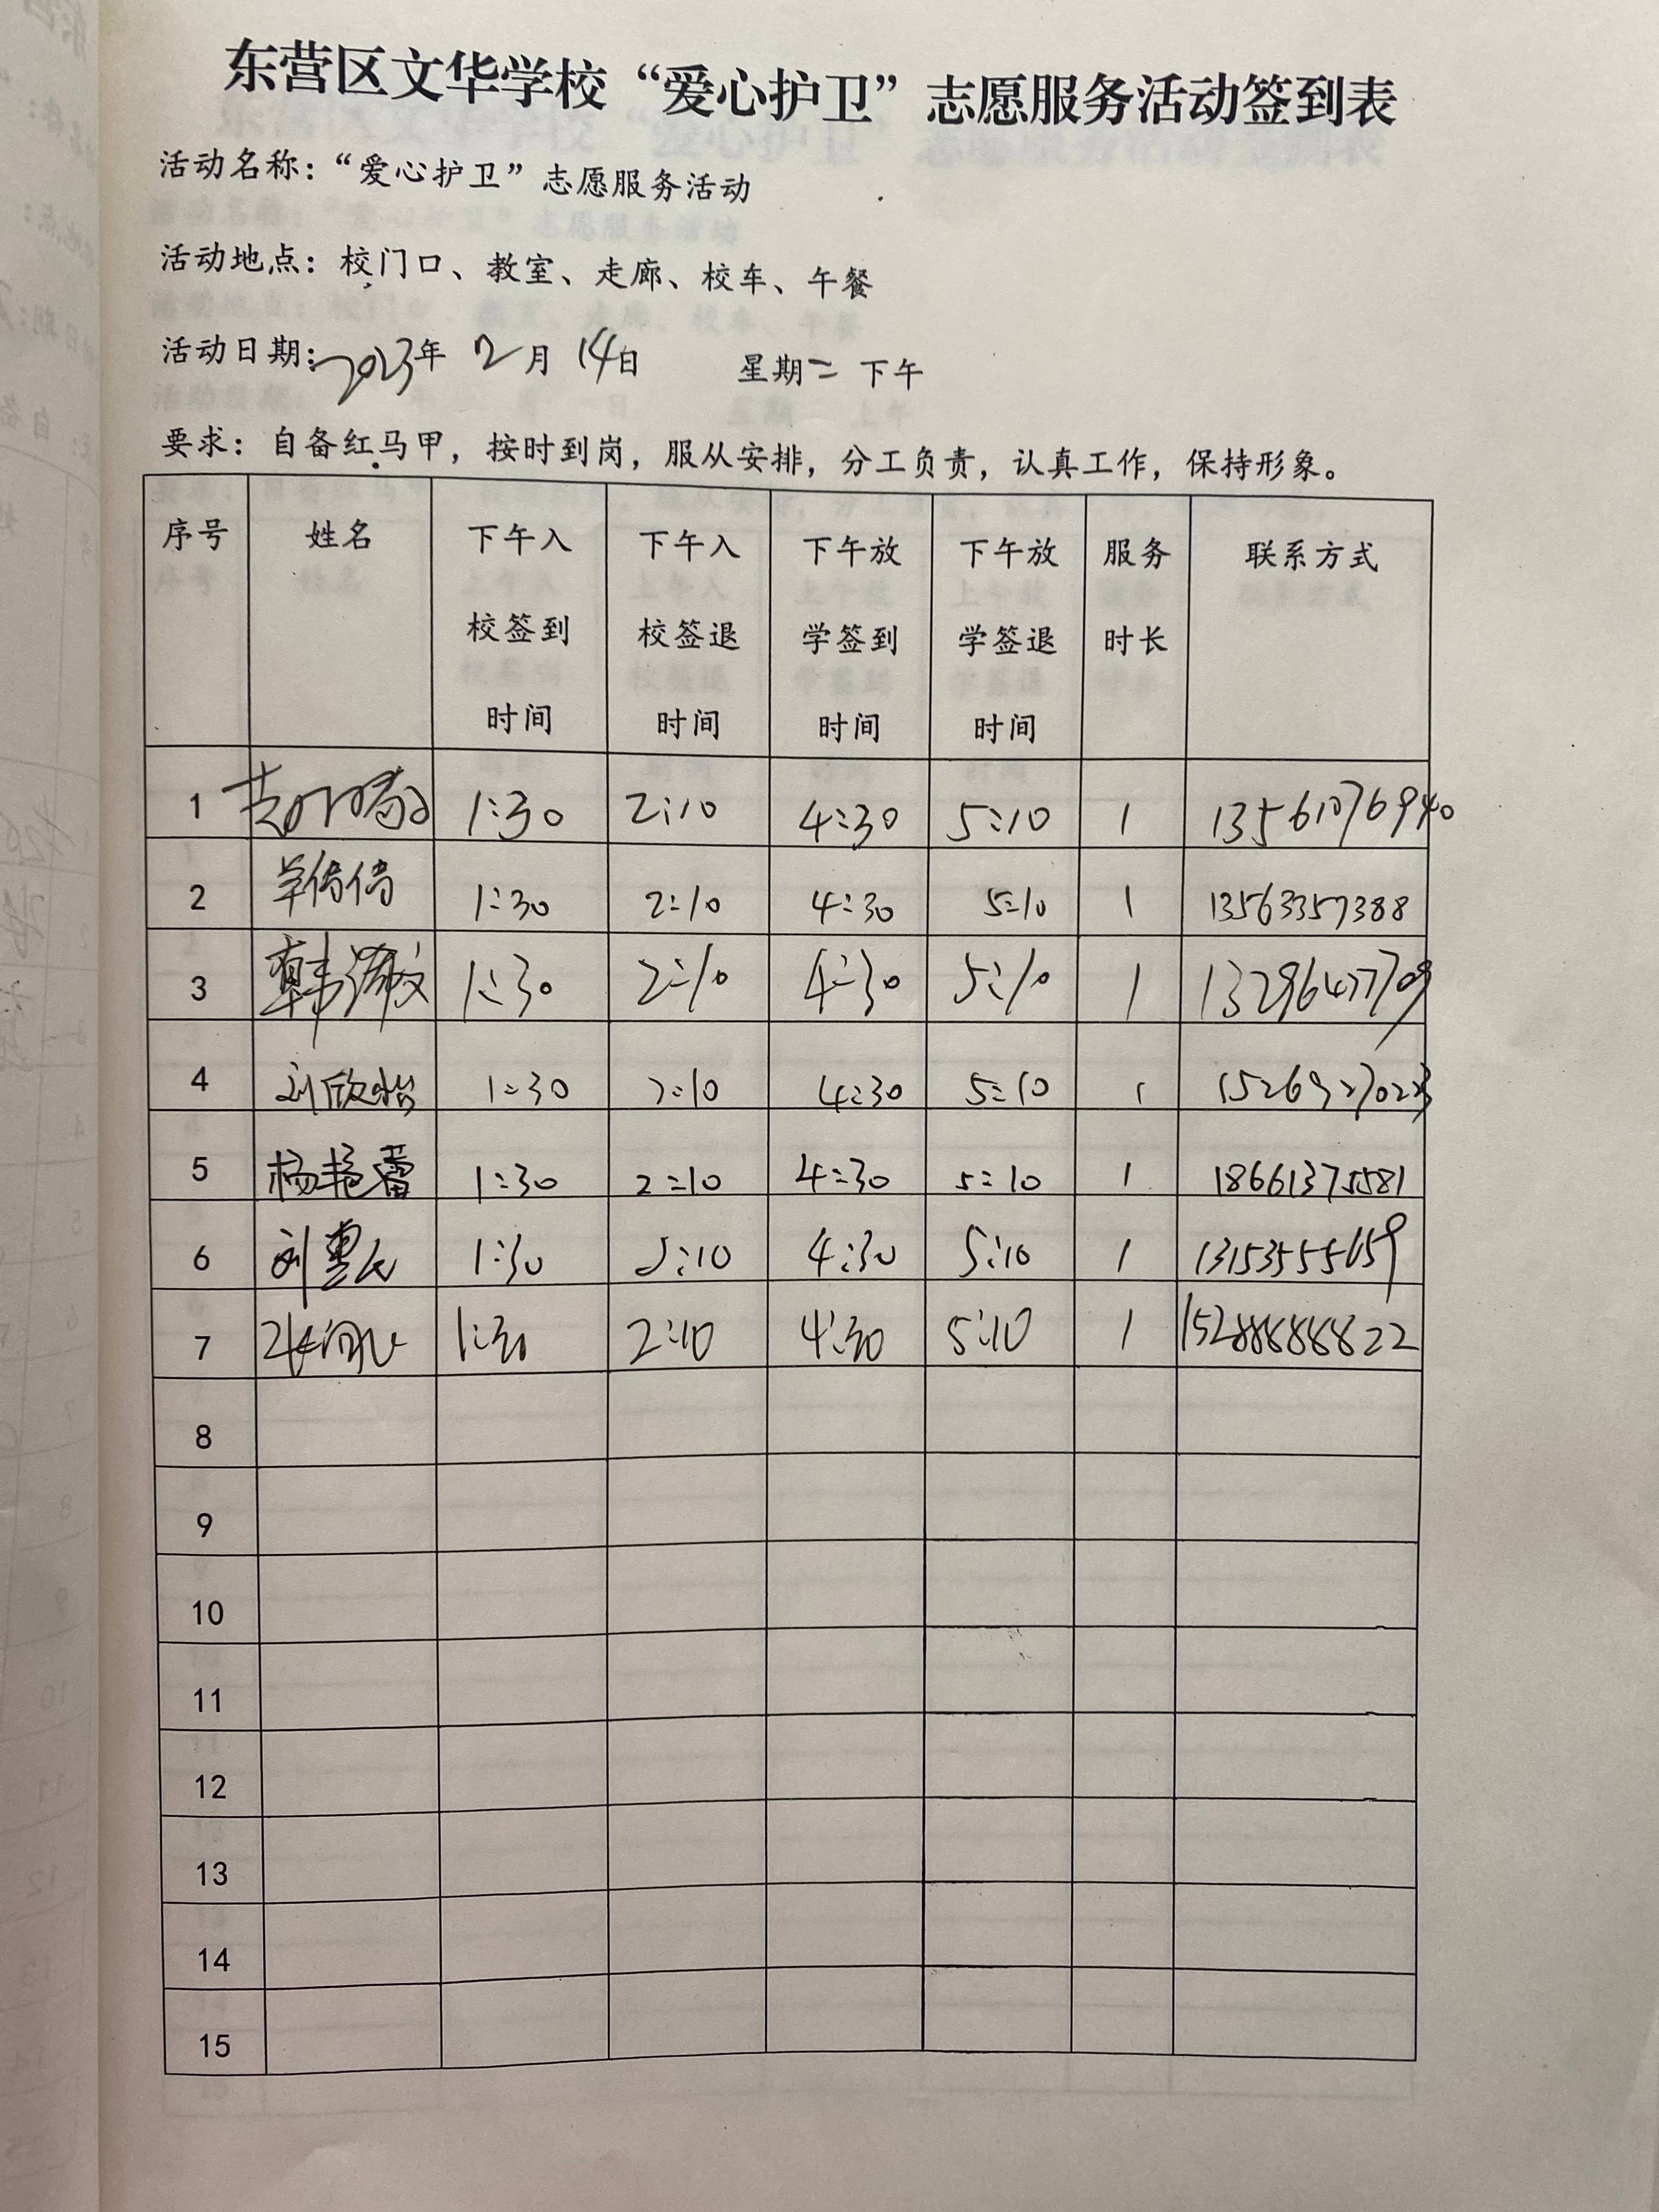 东营区文华学校“爱心护卫”志愿服务活动签到表
活动名称：“爱心护卫”志愿服务活动
活动地点：校门口、教室、走廊、校车、午餐
活动日期：2023年 2月 14日 星期二 下午
要求：自备红马甲，按时到岗，服从安排，分工负责，认真工作，保持形象。
序号 姓名 下午入校签到时间 下午入校签退时间 下午放学签到时间 下午放学签退时间 服务时长 联系方式
1 1:30 2:10 4:30 5:10 1 13561076940
2 羊倩倩 1:30 2:10 4:30 5:10 1 13563357388
3 韩 1:30 2:10 4:30 5:10 1 13296477709
4 刘欣怡 1:30 2:10 4:30 5:10 1
5 杨艳蕾 1:30 2:10 4:30 5:10 1 18661375581
6 刘 1:30 2:10 4:30 5:10 1 13153555659
7 1:30 2:10 4:30 5:10 1 15288888822
8
9
10
11
12
13
14
15